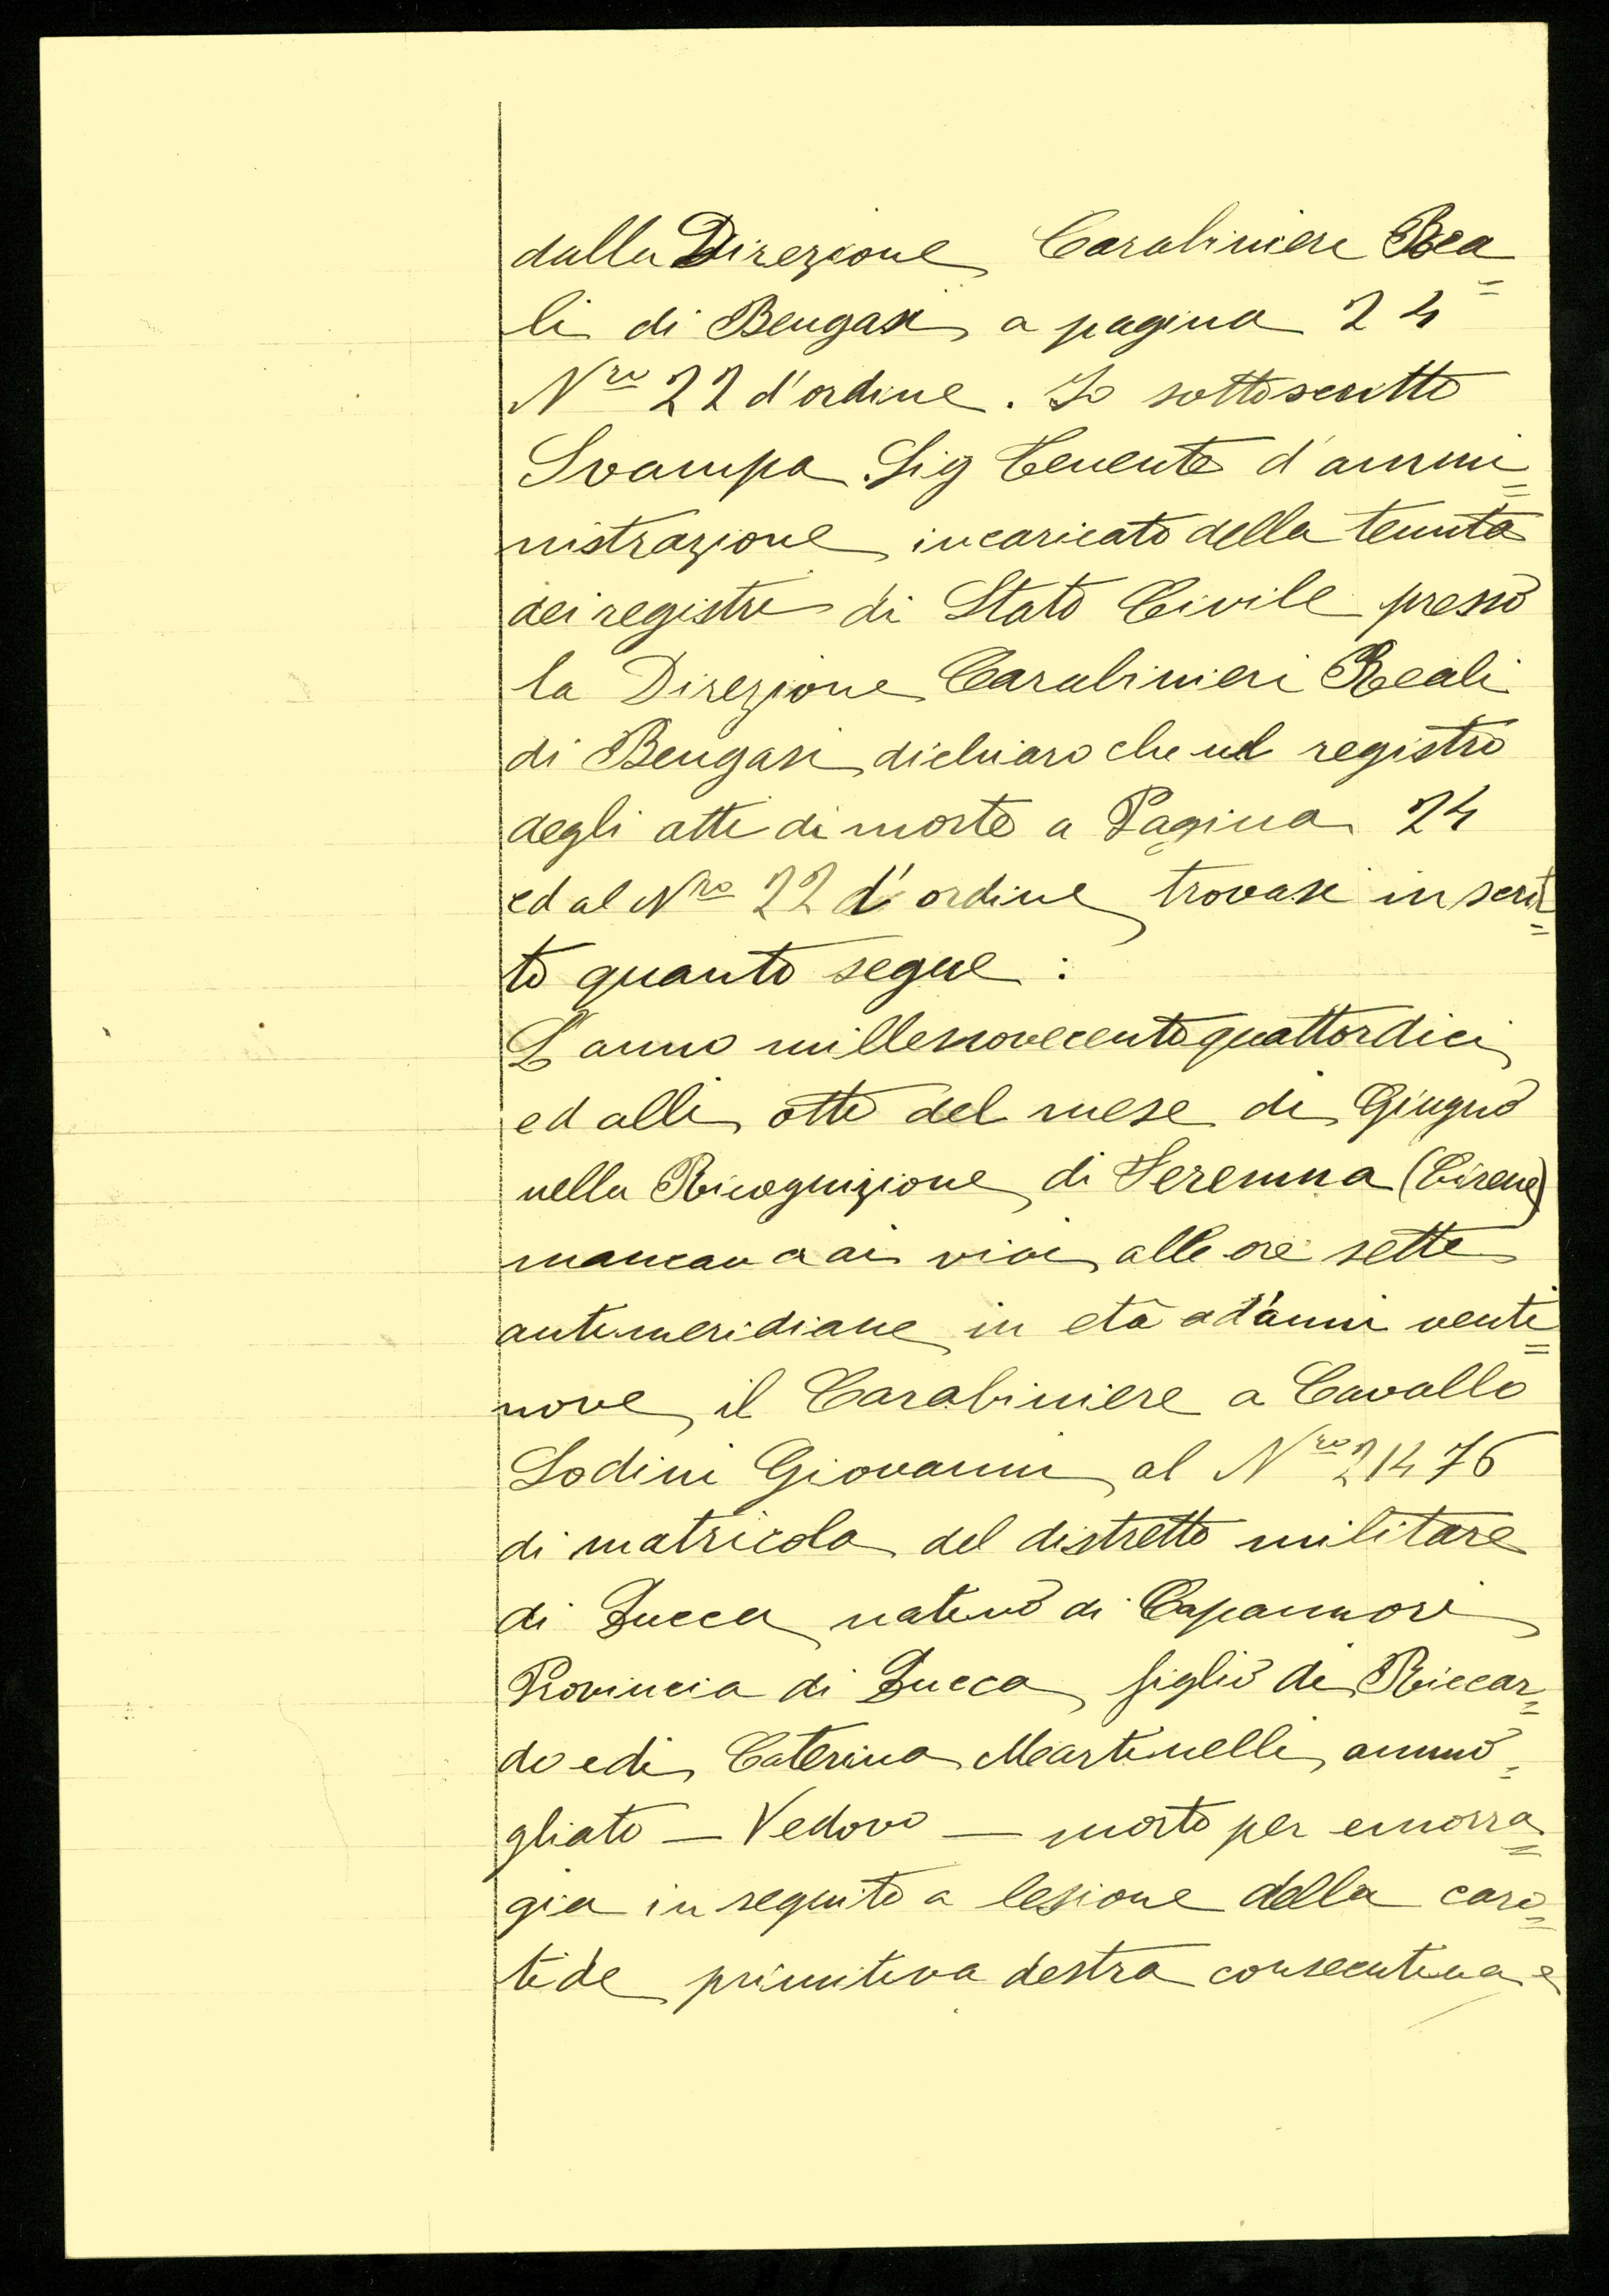 dalla Direzione Carabinieri Rea=
li di Bengasi a pagina 24
Nro 22 d'ordine. Io sottoscritto
Svampa Sig Tenente d'ammi=
nistrazione incaricato della tenuta
dei registri di Stato Civile presso
la Direzione Carabinieri Reali
di Bengasi dichiaro che nel registro
degli atti di morte a Pagina 24
ed al Nro 22 d'ordine trovasi inscrit=
to quanto segue :
L'anno millenovecentoquattordici
ed alli otto del mese di Giugno
nella Ricognizione di Seremna (Cirene)
mancava ai vivi alle ore sette
antimeridiane in età ad'anni venti=
nove il Carabiniere a Cavallo
Lodini Giovanni al Nro 21476
di matricola del distretto militare
di Lucca nativo di Capannori
Provincia di Lucca figlio di Riccar=
do e di Caterina Martinelli ammo=
gliato — Vedovo — morto per emorra=
gia in seguito a lesione della caro=
tide primitiva destra consecutiva a